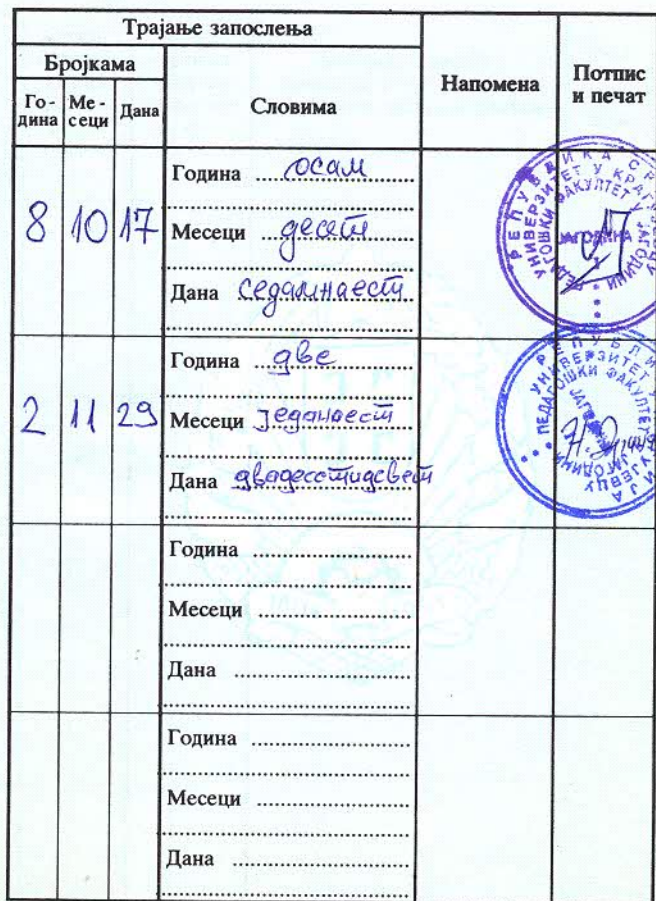 Трајање запослења
Бројкама
Словима
Напомена
Потпис и печат
Го- дина
Ме- сеци
Дана
8 10 17
Година осам
Месеци десет
Дана седамнаест
РЕПУБЛИКА СР
УНИВЕРЗИТЕТ У КРАГУЈЕВЦУ
ПЕДАГОШКИ ФАКУЛТЕТ У ЈАГОДИНИ
ЈАГОДИНА
2 11 29
Година две
Месеци једанаест
Дана двадесетидевет
РЕПУБЛИ
УНИВЕРЗИТЕТ
ПЕДАГОШКИ ФАКУЛТЕТ
Година
Месеци
Дана
Година
Месеци
Дана